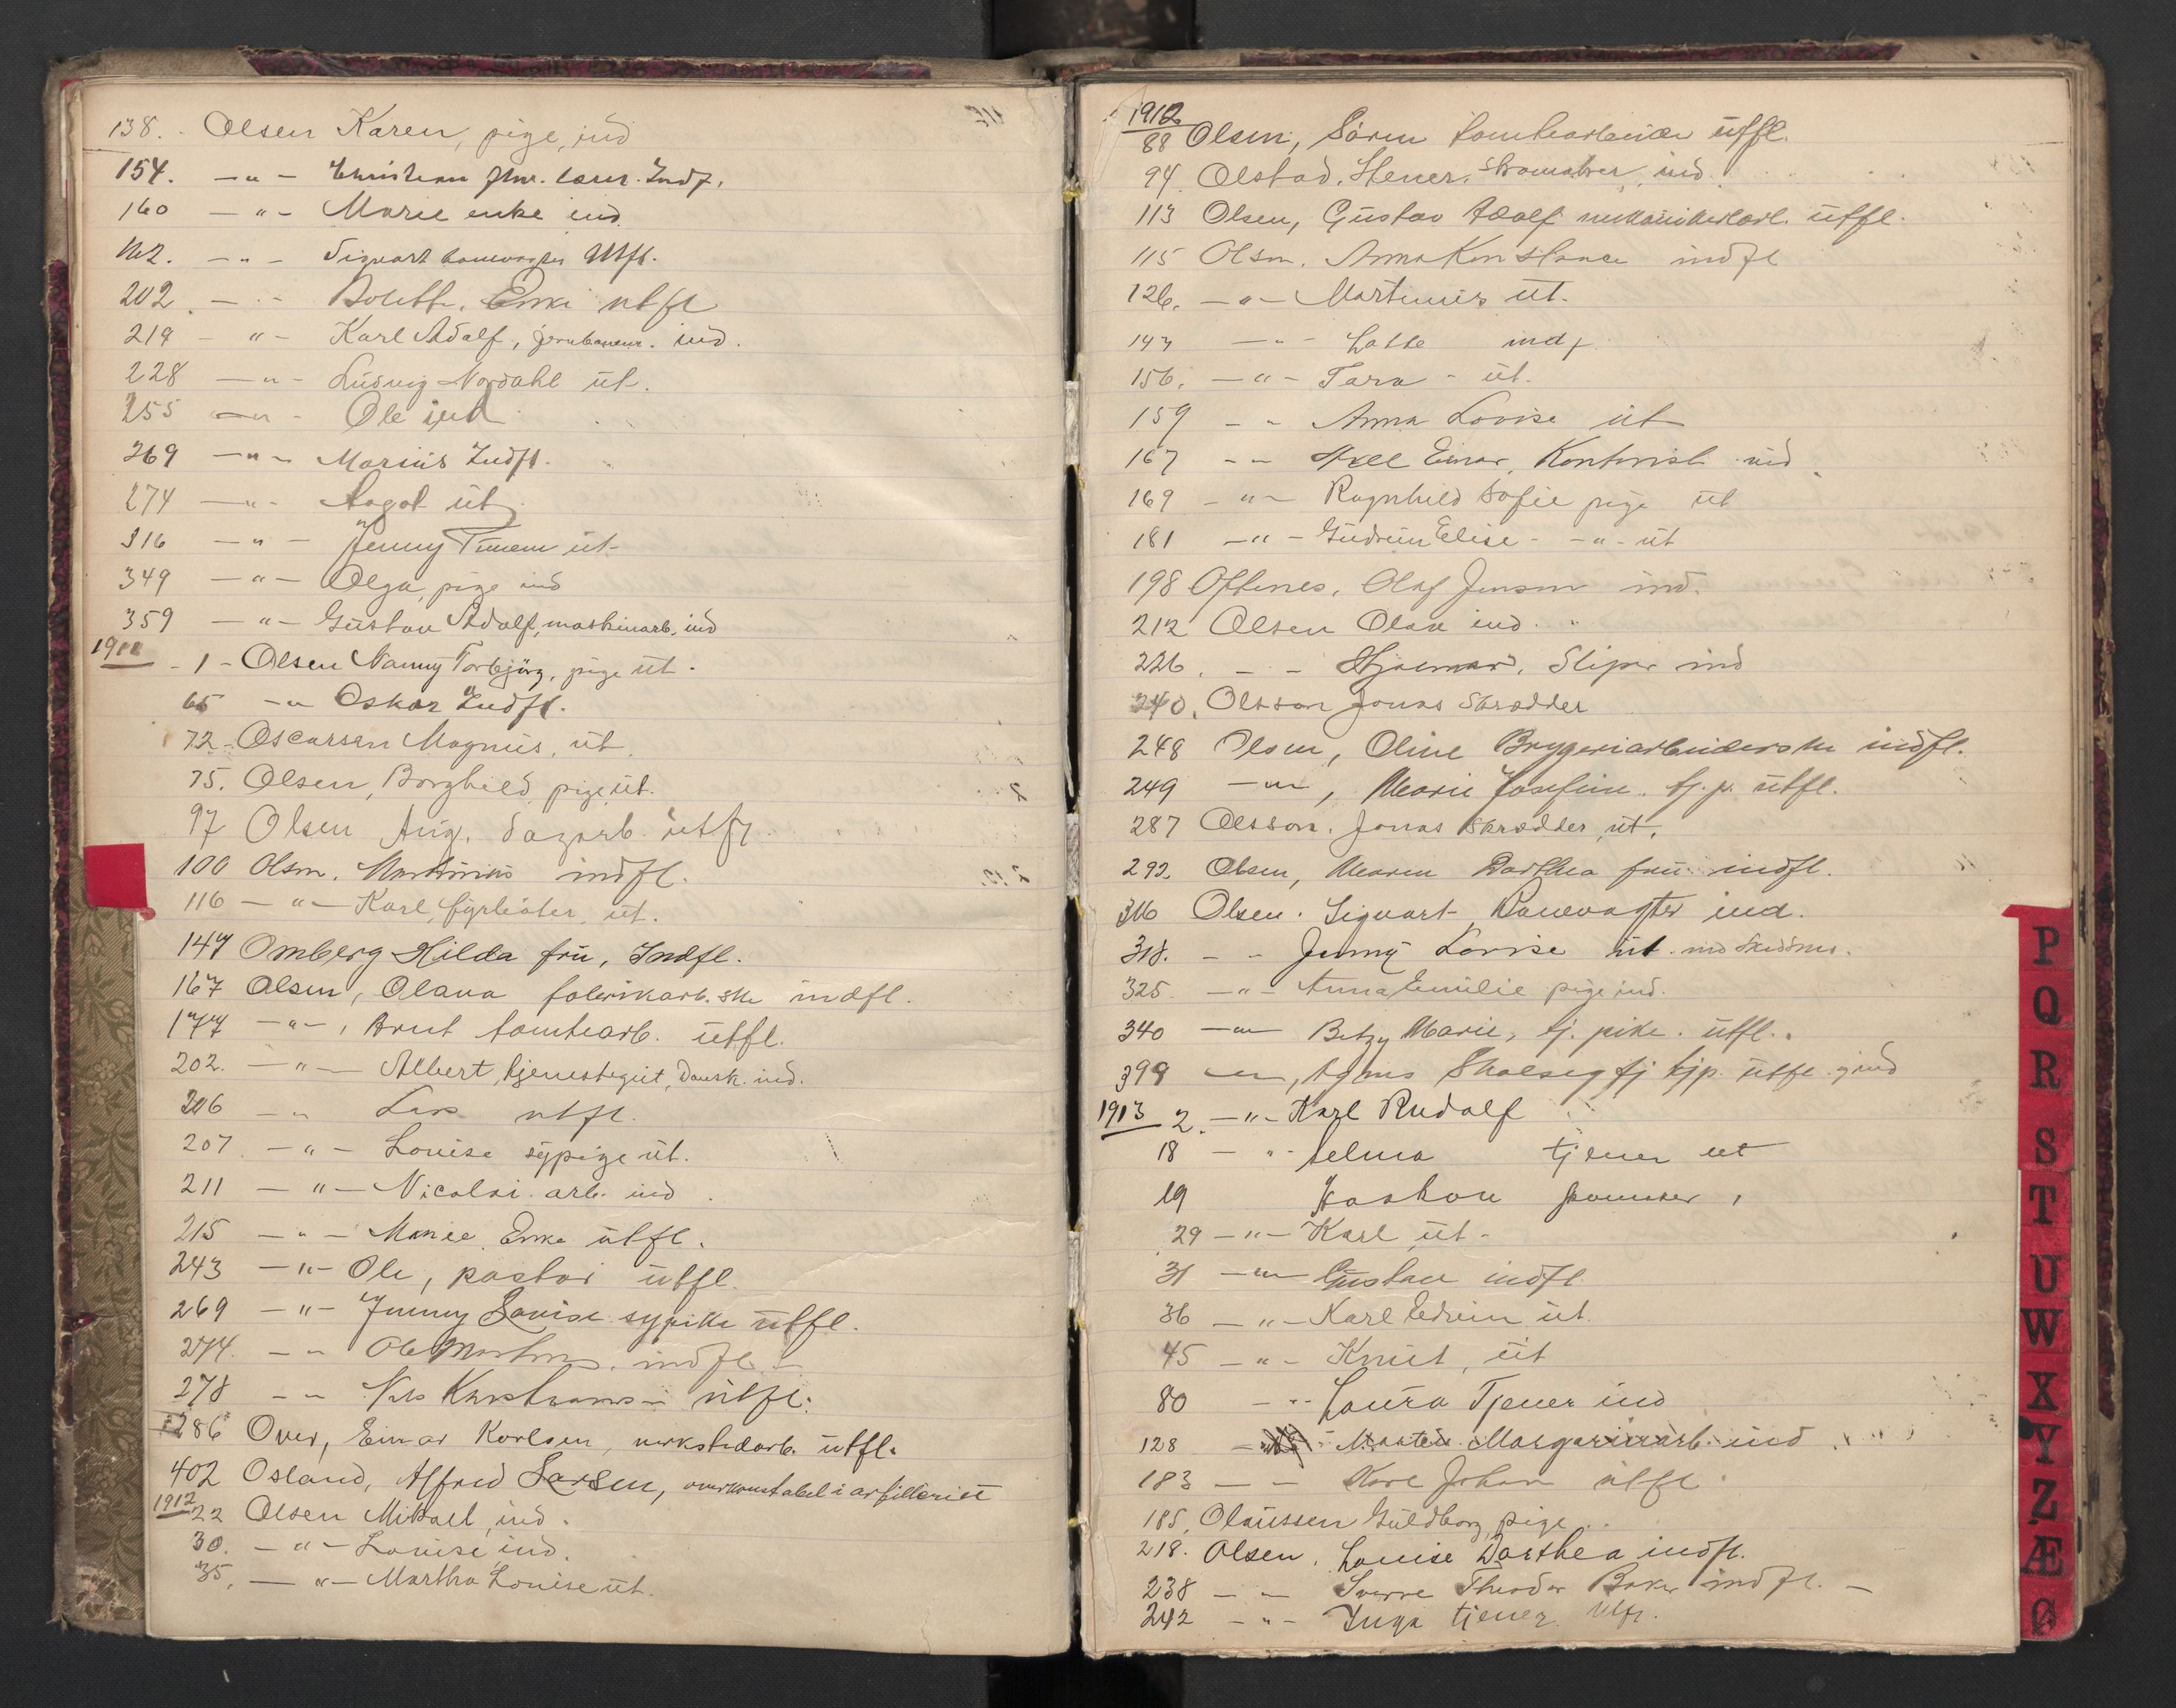 138. Olsen Karen, pige, ind
154. — " — Christian Indf.
160 — " — Marie enke ind
— " — Sigvart banevogter Utfl.
202. — " — Enke utfl
219 — " — Karl Adolf, ind.
228 — " — Ludvig Nordahl üt.
255 — " — Ole ind
269 — " — Marius Indfl.
274 — " — Aagot üt
316 — " — Jenny üt
349 — " — Olga, pige ind
359 — " — Güstav Adolf, maskinarb. ind
1911 - 1 - Olsen Nanny Torbjörg, pige üt.
65 — " Oskar Indfl.
72 - Oscarsen Magnüs, üt.
75. Olsen, Borghild pige üt.
97 Olsen Aug. dagarb. ütfl
100 Olsen, Martinius indfl.
116 — " — Karl, fyrbøter, üt.
147 Omberg Hilda frü, Indfl.
167 Olsen, Olava fabrikarb.ske indfl.
177 — " —, Arnt tomtearb. ütfl.
202. — " — Albert, tjenestegüt, Dansk. ind.
206 — " Lars utfl.
207 — " — Lovise sypige üt.
211 — " — Nicolai arb. ind
215 — " — Marie Enke ütfl.
243 — " — Ole, pastor ütfl.
269 — " — Jenny Lovise sypike ütfl.
274. — " Ole indfl.
278 — " Nils Kristiansen ütfl.
286 Over, Einar Karlsen, verkstedarb. ütfl.
402 Osland, Alfred Larsen, overkonstabel i artilleriet
1912 22 Olsen Mikael, ind.
30. — " — Louise, ind.
35. — " — Martha Louise üt.
1912
88 Olsen, Sören tomtearbeider ütfl.
94. Olstad, Stener, Skomaker, ind.
113 Olsen, Güstav Adolf mekanikerlærl. ütfl.
115 Olsen, Anna Konstance indfl
126. — " — Martinius üt.
143 — " — Lotte indf
156. — " — Tara - üt.
159 — " Anna Lovise üt
167 — " Axel Einar, Kontorist ind
169 — " — Ragnhild Sofie pige üt
181 — " — Güdrün Elise - — " — üt
198 Oftenes, Olaf Jensen ind.
212 Olsen Olav ind.
226. — " — Hjalmar, Sliper ind
240. Olsson Jonas Skrædder
248 Olsen, Oline Bryggeriarbeiderske indfl.
249 — " —, Marie Josefine tj.p. ütfl.
287 Olsson, Jonas Skrædder, üt.
292 Olsen, Maren Dorthea frü indfl.
316 Olsen. Sigvart Banevogter ind.
318. — " Jenny Lovise üt.
325. — " — Anna Emilie pige ind.
340 — " — Betzy Marie, tj. pike. ütfl.
399 — " —, Agnes ütfl.
1913 2. — " — Karl Rudolf
18 — " — Selma tjener ut
19 Haakon
29 — " — Karl üt.
31 — " — Güstav indfl
36 — " — Karl Edvin üt.
45 — " — Knüt, üt
80 — " — Laüra Tjener ind
128 — Morten Margarinarb. ind
183 — " — Karl Johan ütfl
185. Olaüssen Güldborg, pige
218. Olsen, Louise Dorthea indfl.
238 — " — Sverre Theodor Baker indfl. —
242 — " — Inga tjener Utfl.
P
Q
R
S
T
U
W
X
Y
Z
Æ
Ø